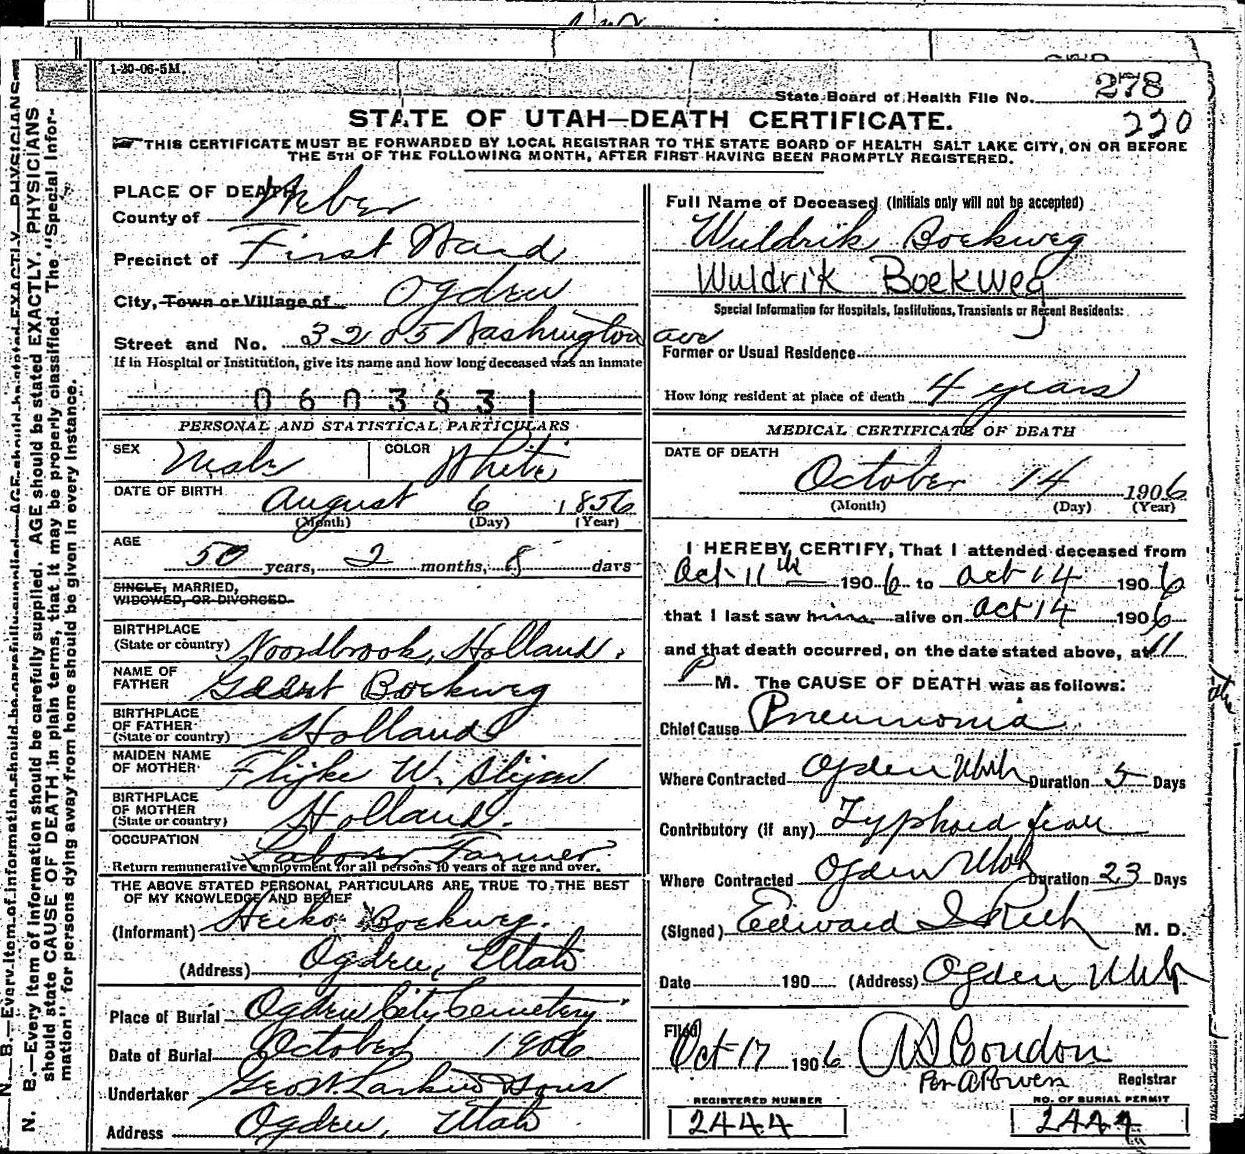 1-20-06-5M.
State Board of Health File No. 278
220
STATE OF UTAH—DEATH CERTIFICATE.
THIS CERTIFICATE MUST BE FORWARDED BY LOCAL REGISTRAR TO THE STATE BOARD OF HEALTH SALT LAKE CITY, ON OR BEFORE
THE 5TH OF THE FOLLOWING MONTH, AFTER FIRST HAVING BEEN PROMPTLY REGISTERED.
PLACE OF DEATH
County of Weber
Precinct of First Ward
City, Town or Village of Ogden
Street and No. 3205 Washington ave
If in Hospital or Institution, give its name and how long deceased was an inmate
0603631
Full Name of Deceased (Initials only will not be accepted)
Wuldrik Boekweg
Wuldrik Boekweg
Special Information for Hospitals, Institutions, Transients or Recent Residents:
Former or Usual Residence
How long resident at place of death 4 years
PERSONAL AND STATISTICAL PARTICULARS
SEX Male COLOR White
DATE OF BIRTH August 6 1856
(Month) (Day) (Year)
AGE
50 years, 2 months, 8 days
SINGLE, MARRIED,
WIDOWED, OR DIVORCED.
BIRTHPLACE
(State or country) Noordbrook, Holland.
NAME OF
FATHER Geert Boekweg
BIRTHPLACE
OF FATHER
(State or country) Holland
MAIDEN NAME
OF MOTHER Flijke W.
BIRTHPLACE
OF MOTHER
(State or country) Holland.
OCCUPATION
Labor Farmer
Return remunerative employment for all persons 10 years of age and over.
THE ABOVE STATED PERSONAL PARTICULARS ARE TRUE TO THE BEST
OF MY KNOWLEDGE AND BELIEF
(Informant) Heiko Boekweg.
(Address) Ogden, Utah
Place of Burial Ogden City Cemetery.
Date of Burial October 1906
Undertaker Geo W. Larkin & Sons
Address Ogden, Utah
MEDICAL CERTIFICATE OF DEATH
DATE OF DEATH
October 14 1906
(Month) (Day) (Year)
I HEREBY CERTIFY, That I attended deceased from
Oct 11th 1906 to Oct 14 1906
that I last saw him alive on Oct 14 1906
and that death occurred, on the date stated above, at 11
P M. The CAUSE OF DEATH was as follows:
Chief Cause Pneumonia
Where Contracted Ogden Utah Duration 5 Days
Contributory (if any) Typhoid fever
Where Contracted Ogden Utah Duration 23 Days
(Signed) Edward I Rich M. D.
Date 190 (Address) Ogden Utah
Filed Oct 17 1906 Condon
Per A Powers Registrar
REGISTERED NUMBER
2444
NO. OF BURIAL PERMIT
2444
N. B.—Every item of information should be carefully supplied. AGE should be stated EXACTLY. PHYSICIANS
N. B.—Every item of information should be carefully supplied. AGE should be stated EXACTLY. PHYSICIANS
should state CAUSE OF DEATH in plain terms, that it may be properly classified. The "Special Infor-
mation" for persons dying away from home should be given in every instance.